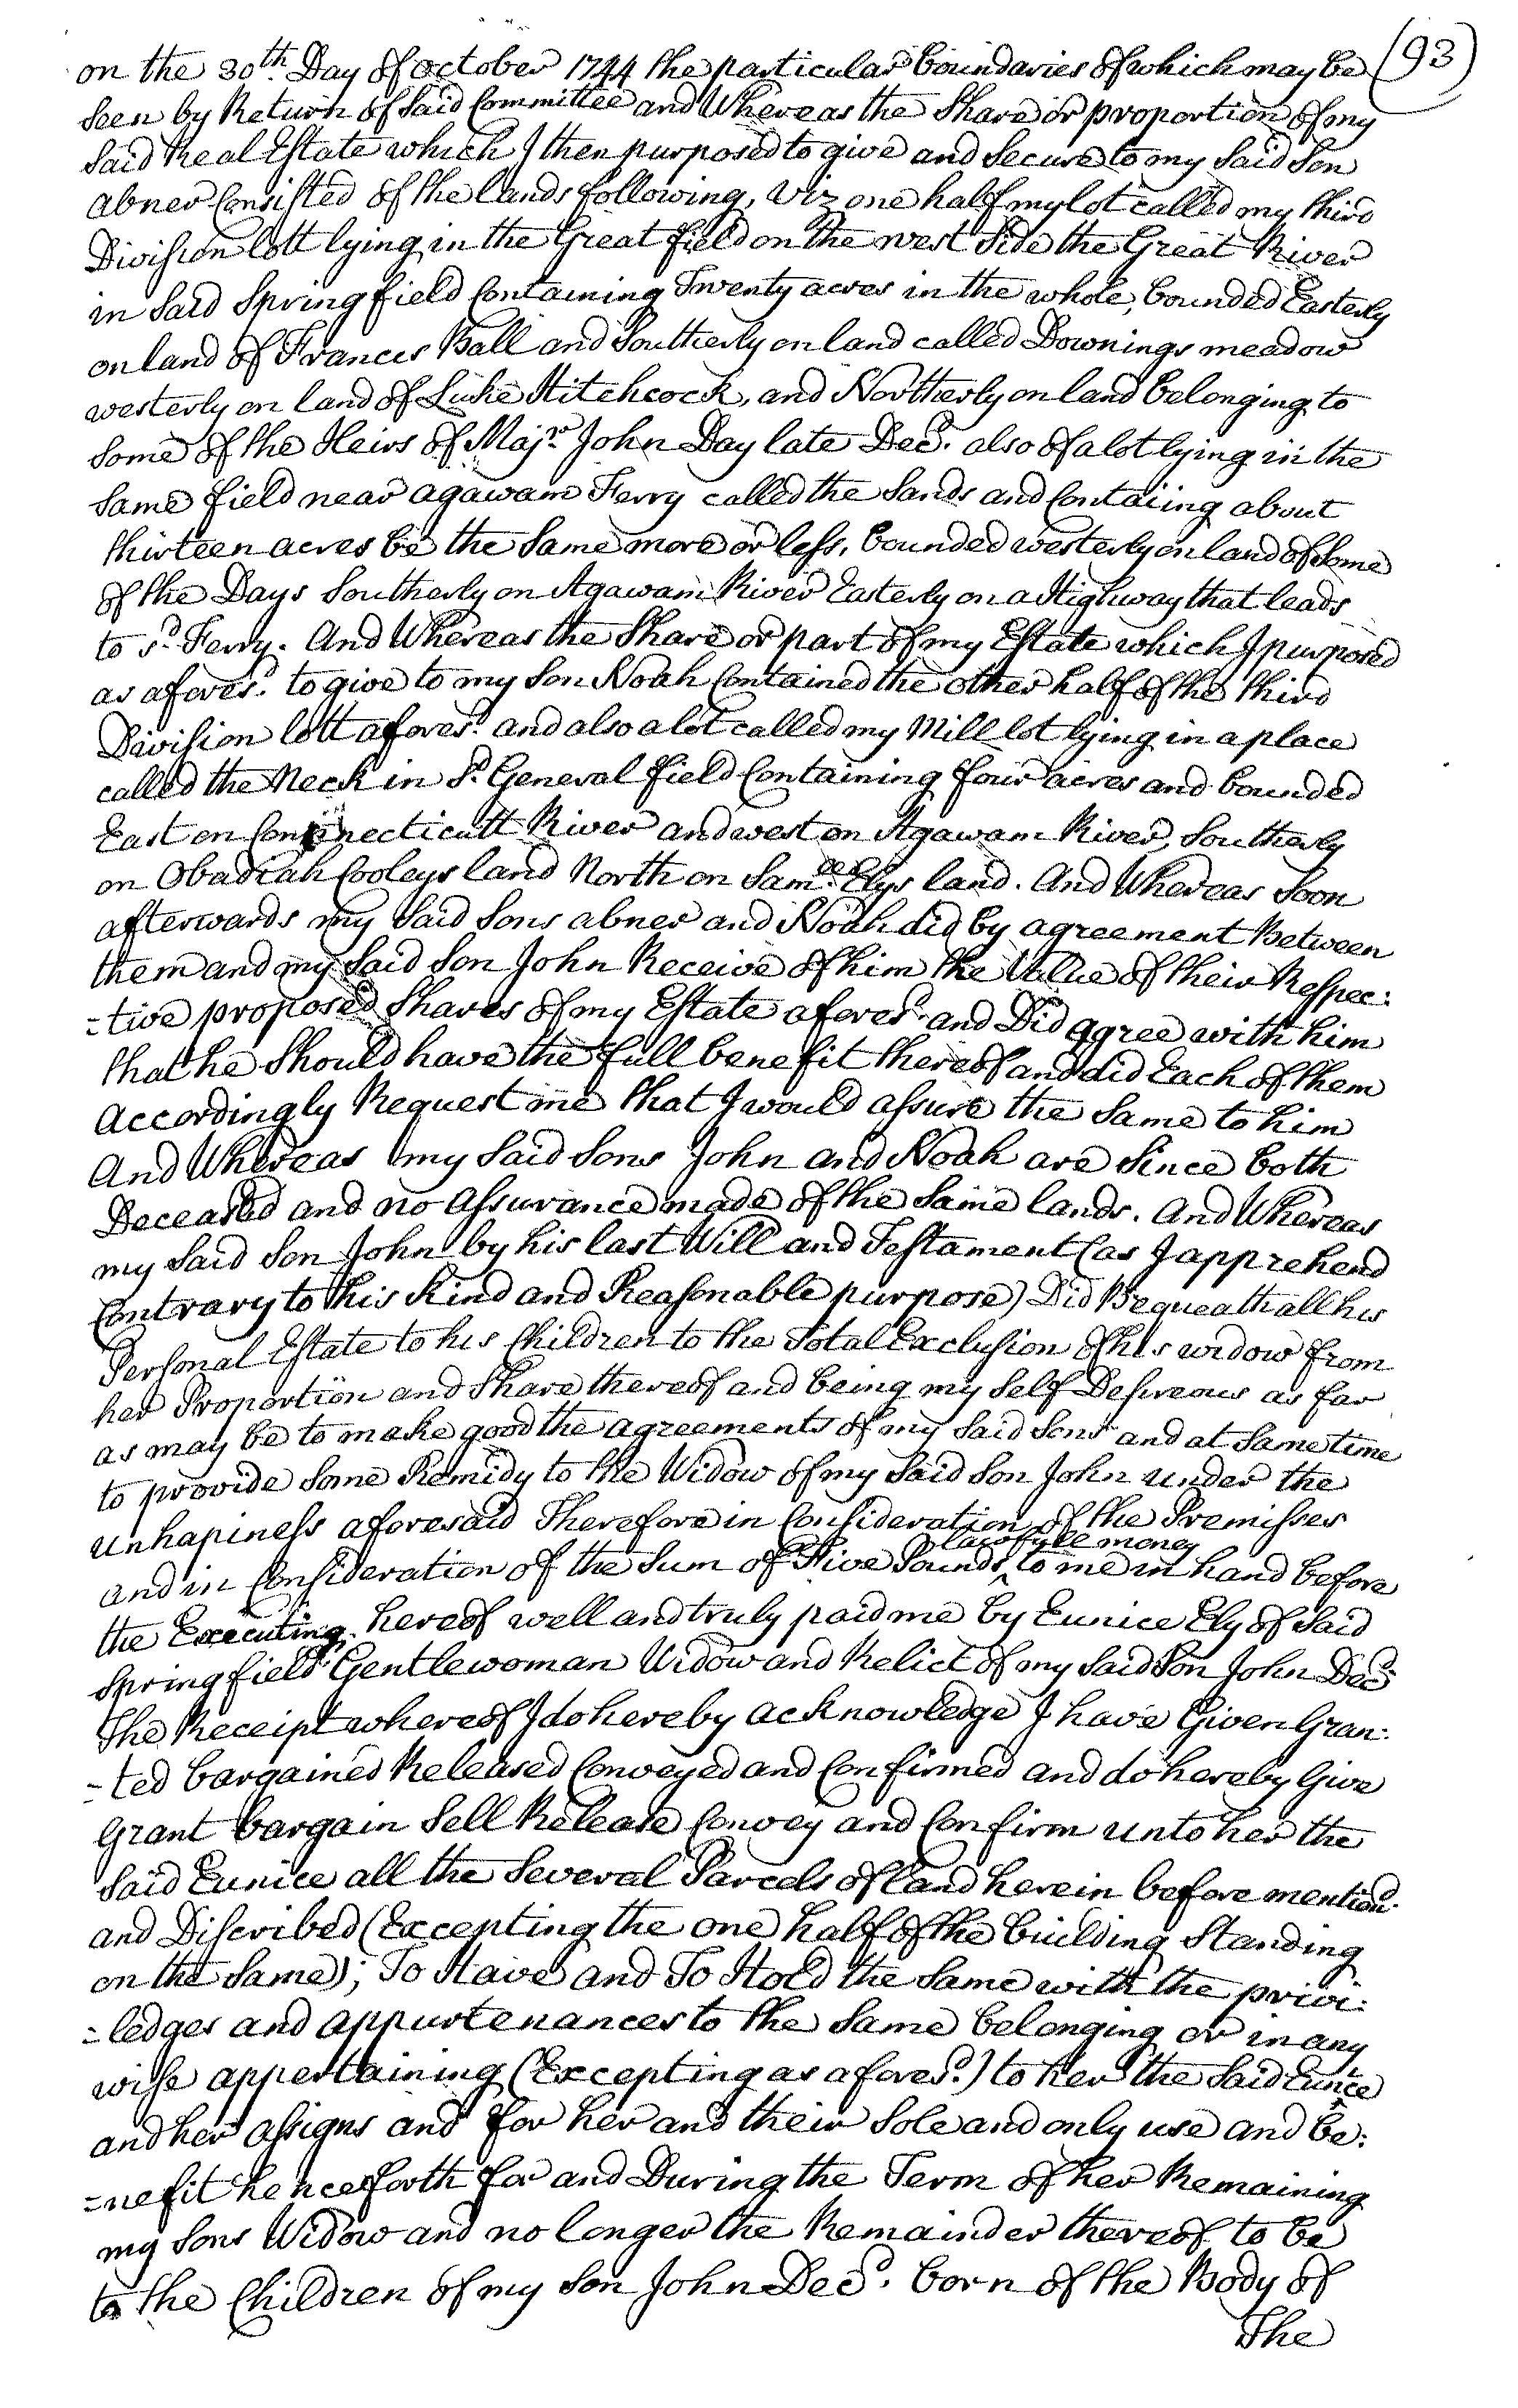 (93)
on the 30th. Day of october 1744 the particular boundaries of which may be
seen by Return of Said Committee and Whereas the Share or proportion of my
Said Real Estate which I then purposed to give and Secure to my Said Son
abner Consisted of the lands following, Viz one half my lot called my third
Division lott lying in the Great field on the west Side the Great River
in Said Springfield Containing Twenty acres in the whole, bounded Easterly
on land of Frances Ball and Southerly on land called Downings meadow
westerly on land of Luke Hitchcock, and Northerly on land belonging to
Some of the Heirs of Majr. John Day late Decd. also of a lot lying in the
Same field near agawam Ferry called the Sands and Contaiing about
thirteen acres be the Same more or less, bounded westerly on land of Some
of the Days Southerly on Agawam River Easterly on a Highway that leads
to sd. Ferry. And Whereas the Share or part of my Estate which I purposed
as afores.d to give to my Son Noah Contained the other half of the third
Division lott afores.d and also a lot called my Mill lot lying in a place
called the Neck in Sd. General field Containing four acres and bounded
East on Connecticutt River and west on Agawam River, Southerly
on Obadiah Cooleys land North on Samll. Elys land. And Whereas Soon
afterwards my Said Sons abner and Noah did by agreement Between
them and my Said Son John Receive of him the Value of their Respec:
=tive proposed Shares of my Estate afores.d and Did agree with him
that he Should have the full benefit thereof and did Each of them
accordingly Request me that I would assure the Same to him
And Whereas my Said Sons John and Noah are Since both
Deceased and no assurance made of the Same lands. And Whereas
my Said Son John by his last Will and Testament (as I apprehend
Contrary to his Kind and Reasonable purpose) Did Bequeath all his
Personal Estate to his Children to the Total Exclusion of his widow from
her Proportion and Share thereof and being my Self Desireous as far
as may be to make good the agreements of my Said Sons and at Same time
to provide Some Remidy to the Widow of my Said Son John under the
unhapiness aforesaid Therefore in Consideration of the Premisses
and in Consideration of the Sum of Five Pounds ^lawfull money to me in hand before
the Executing hereof well and truly paid me by Eunice Ely of Said
Springfield Gentlewoman Widow and Relict of my Said Son John Decd.
The Receipt whereof I do hereby acknowledge I have Given Gran:
-ted bargained Released Conveyed and Confirmed and do hereby Give
Grant bargain Sell Release Convey and Confirm unto her the
Said Eunice all the Several Parcels of land herein before mentiond.
and Discribed (Excepting the one half of the building Standing
on the Same); To Have and To Hold the Same with the privi:
=ledges and appurtenances to the Same belonging or in any
wise appertaining (Excepting as afores.d) to her the Said Eunice
and her assigns and for her and their Sole and only use and be:
=nefit henceforth for and During the Term of her Remaining
my Sons Widow and no longer the Remainder thereof to be
to the Children of my Son John Decd. born of the Body of
The